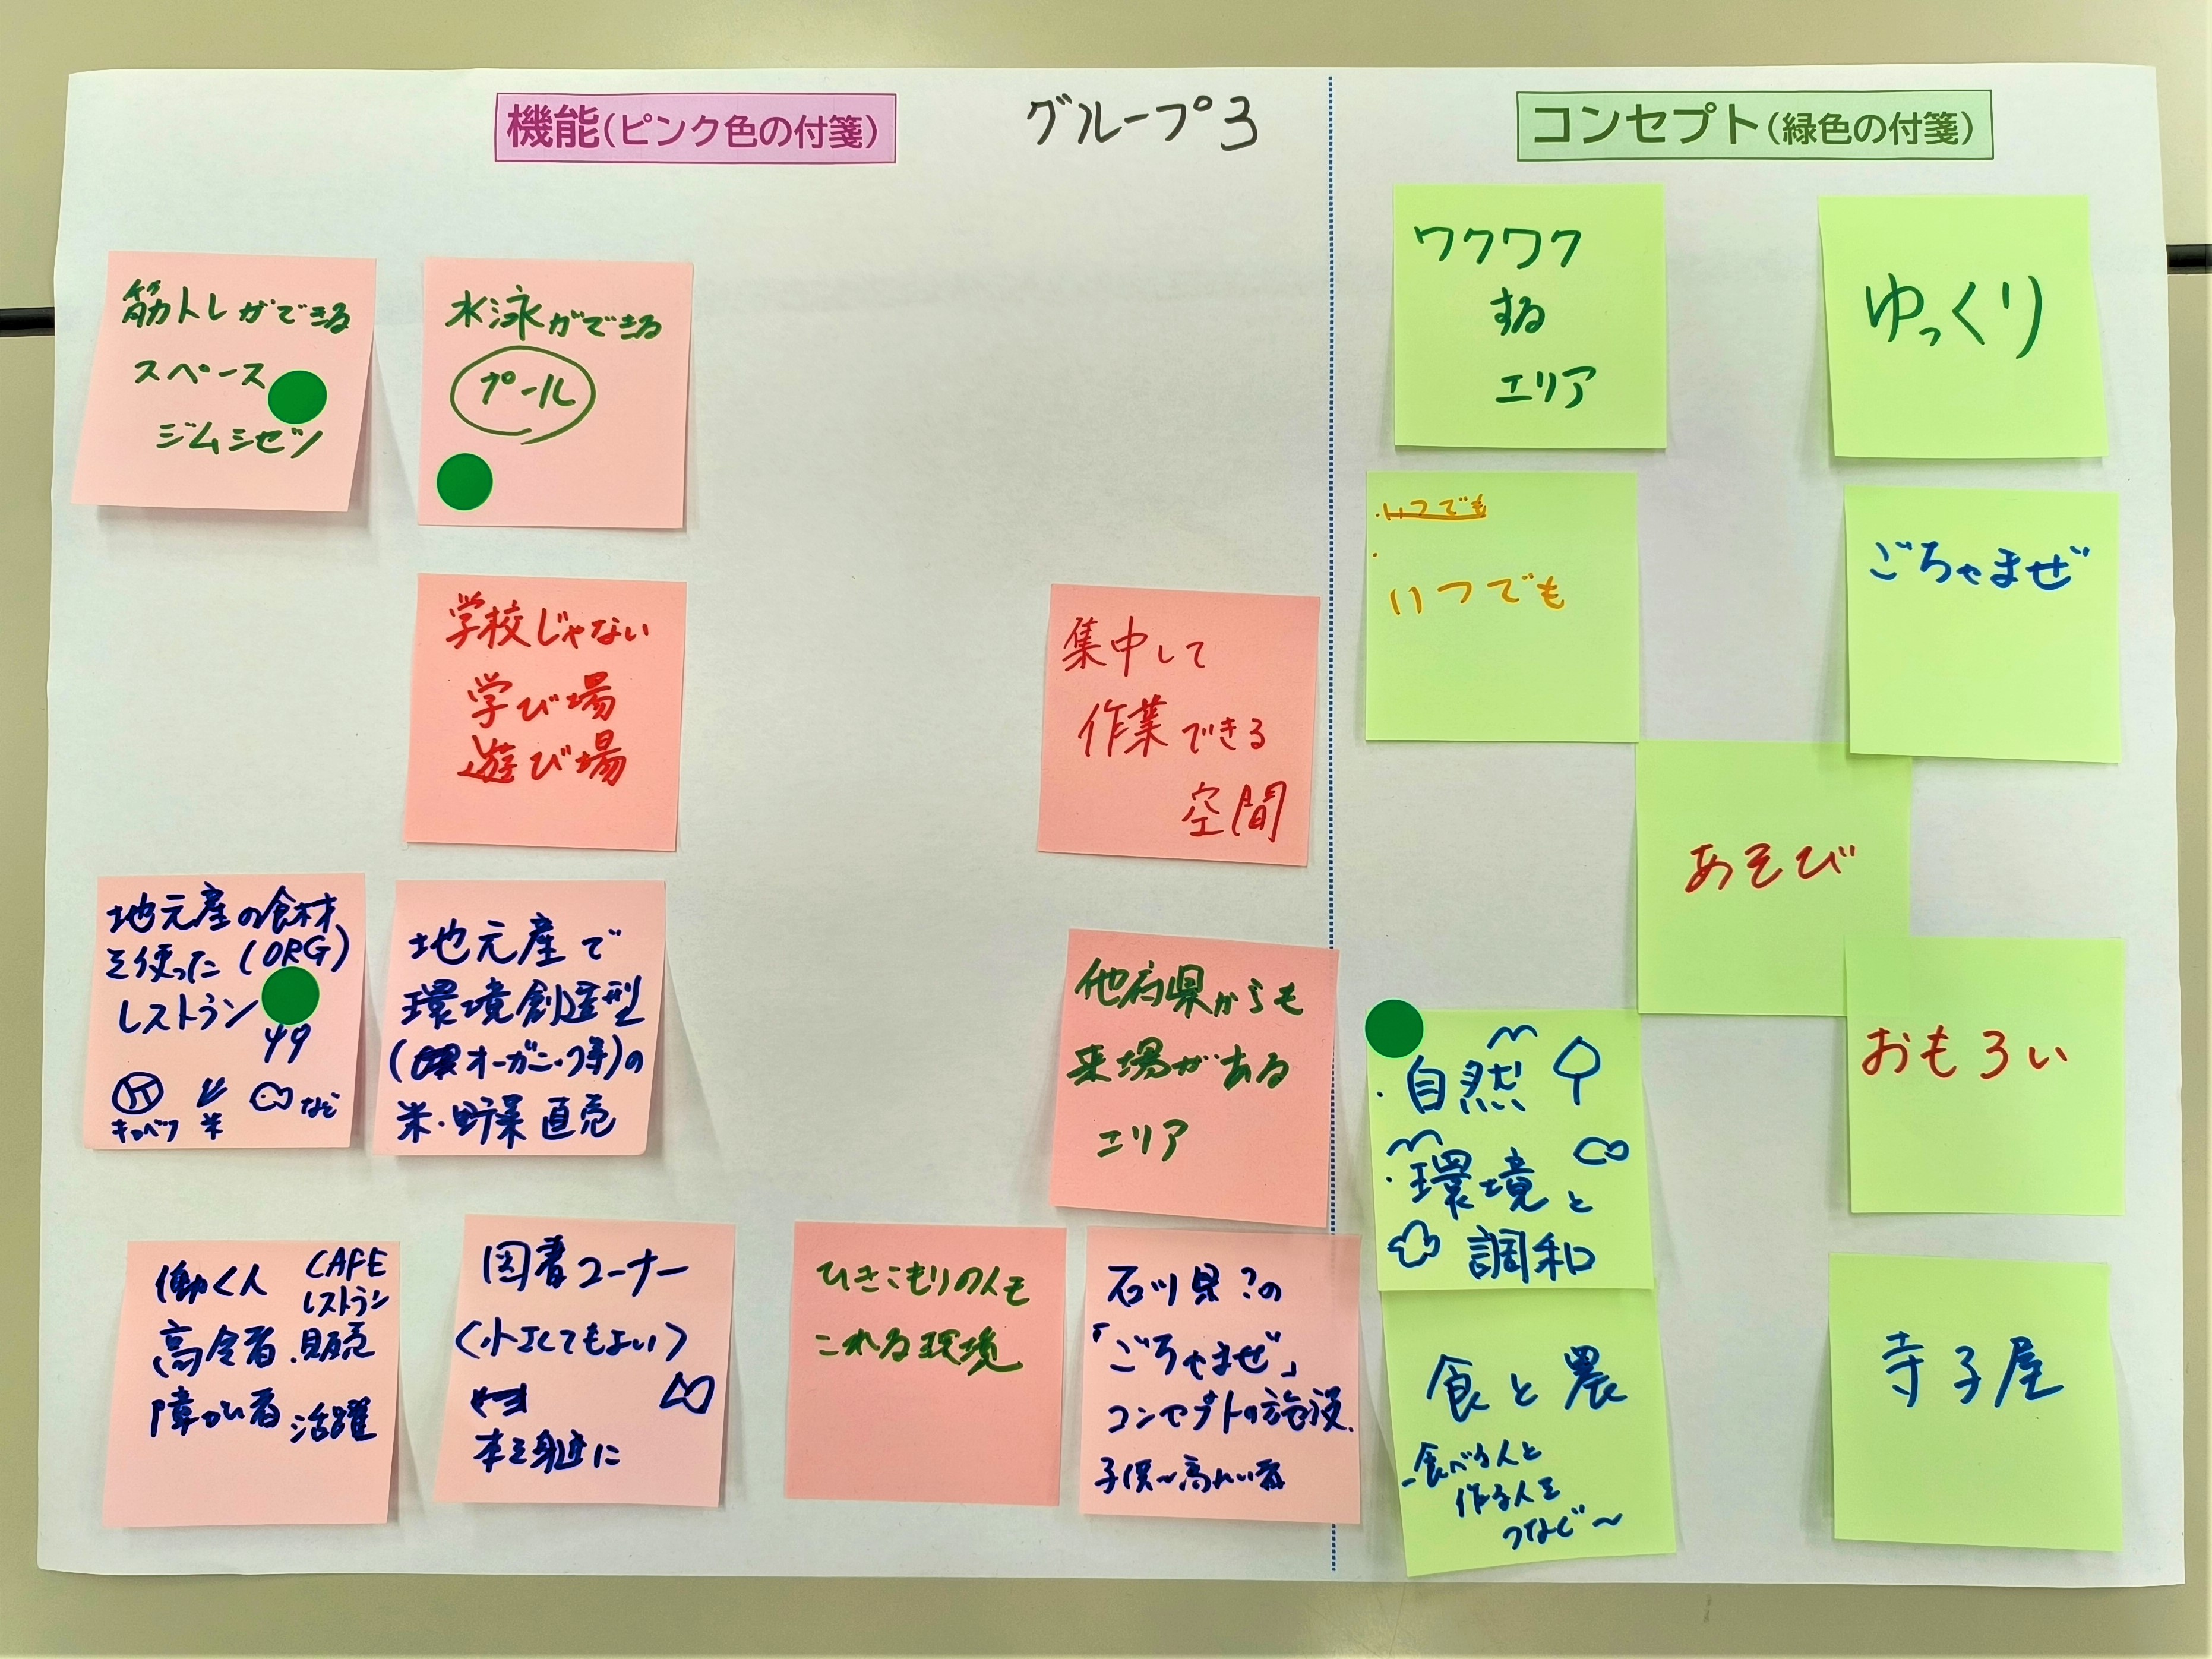 機能(ピンク色の付箋)
グループ3
コンセプト(緑色の付箋)
筋トレができる
スペース
ジムシセツ
水泳ができる
プール
学校じゃない
学び場
遊び場
集中して
作業できる
空間
地元産の食材
を使った(ORG)
レストラン
キャベツ
米
など
地元産で
環境創造型
(オーガニック等)の
米・野菜直売
他府県からも
来場がある
エリア
働く人
高令者
障がい者
CAFE
レストラン
・販売
活躍
図書コーナー
(小さくてもよい)
本を身近に
ひきこもりの人も
これる環境
石川県?の
「ごちゃまぜ」
コンセプトの施設.
子供〜高れい者
ワクワク
する
エリア
ゆっくり
・いつでも
・
いつでも
ごちゃまぜ
あそび
おもろい
・自然
・環境と
調和
食と農
-食べる人と
作る人を
つなぐ〜
寺子屋